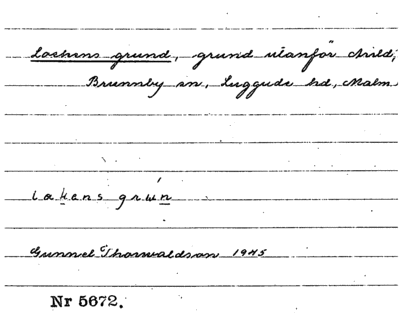 Lockens grund, grund utanför Arild,
Brunnby sn, Luggude hd, Malm
lakens grún
Gunnel Thorwaldson 1945
Nr 5672.